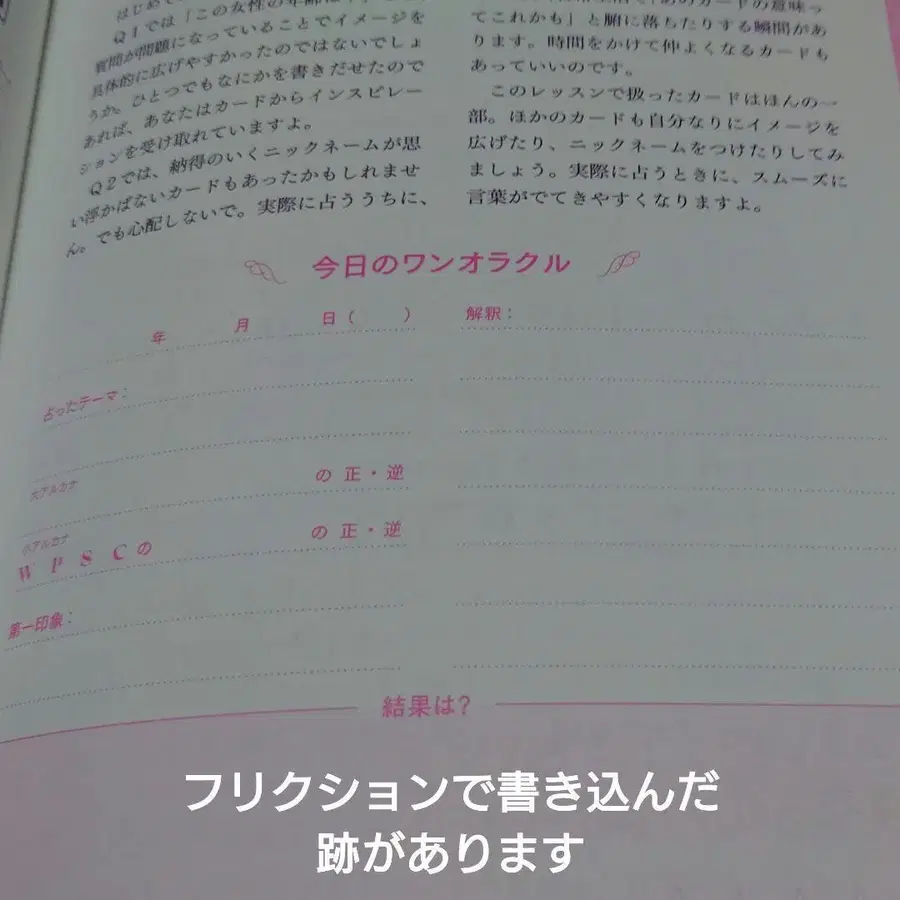 Q1では「この女性の年齢は
質問が問題になっていることでイメージを
具体的に広げやすかったのではないでしょ
うか。ひとつでもなにかを書きだせたので
あれば、あなたはカードからインスピレー
ションを受け取れていますよ。
Q2では、納得のいくニックネームが思
い浮かばないカードもあったかもしれませ
ん。でも心配しないで。実際に占ううちに、
「あのカードの意味っ
てこれかも」と腑に落ちたりする瞬間があ
ります。時間をかけて仲よくなるカードも
あっていいのです。
このレッスンで扱ったカードはほんの一
部。ほかのカードも自分なりにイメージを
広げたり、ニックネームをつけたりしてみ
ましょう。実際に占うときに、スムーズに
言葉がでてきやすくなりますよ。
今日のワンオラクル
年 月 日( )
占ったテーマ:
大アルカナ
の 正・逆
小アルカナ
W P S Cの の 正・逆
第一印象:
解釈:
結果は?
フリクションで書き込んだ
跡があります